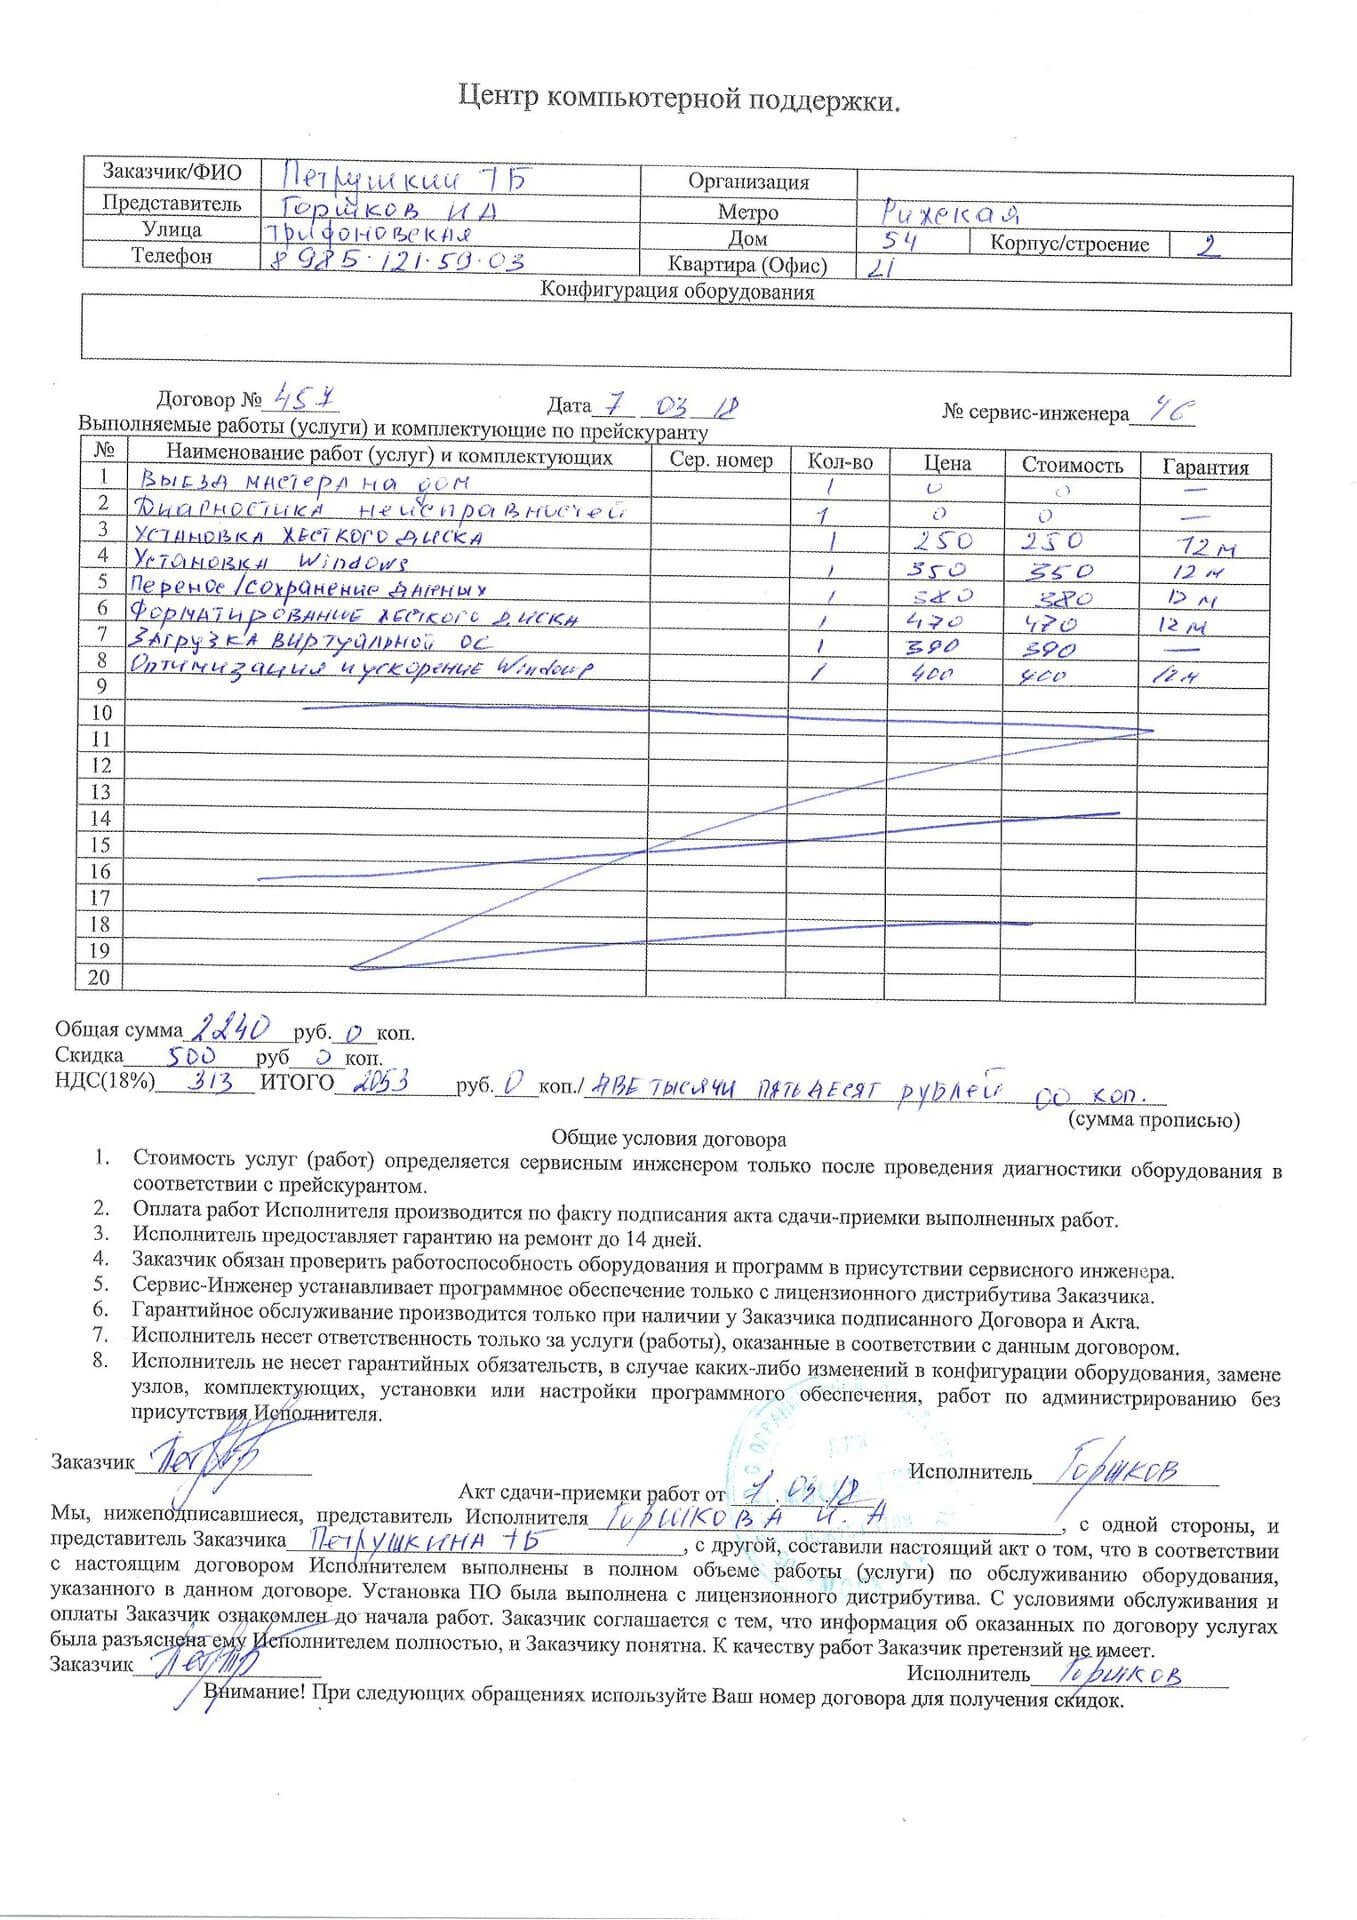 Центр компьютерной поддержки.
Заказчик/ФИО Петрушкин ТБ Организация
Представитель Горшков И А Метро Рижская
Улица Трифоновская Дом 54 Корпус/строение 2
Телефон 8 985·121·59·03 Квартира (Офис) 21
Конфигурация оборудования
Договор № 457 Дата 7 03 18 № сервис-инженера 46
Выполняемые работы (услуги) и комплектующие по прейскуранту
№ Наименование работ (услуг) и комплектующих Сер. номер Кол-во Цена Стоимость Гарантия
1 Выезд мастера на дом 1 0 0 —
2 Диагностика неисправностей 1 0 0 —
3 Установка жесткого диска 1 250 250 12 м
4 Установка Windows 1 350 350 12 м
5 Перенос/сохранение данных 1 380 380 12 м
6 Форматирование жесткого диска 1 470 470 12 м
7 Загрузка виртуальной ос 1 390 390 —
8 Оптимизация и ускорение Windows 1 400 400 12 м
9
10
11
12
13
14
15
16
17
18
19
20
Общая сумма 2240 руб. 0 коп.
Скидка 500 руб 0 коп.
НДС(18%) 313 ИТОГО 2053 руб. 0 коп./ две тысячи пятьдесят рублей 00 коп.
(сумма прописью)
Общие условия договора
1. Стоимость услуг (работ) определяется сервисным инженером только после проведения диагностики оборудования в
соответствии с прейскурантом.
2. Оплата работ Исполнителя производится по факту подписания акта сдачи-приемки выполненных работ.
3. Исполнитель предоставляет гарантию на ремонт до 14 дней.
4. Заказчик обязан проверить работоспособность оборудования и программ в присутствии сервисного инженера.
5. Сервис-Инженер устанавливает программное обеспечение только с лицензионного дистрибутива Заказчика.
6. Гарантийное обслуживание производится только при наличии у Заказчика подписанного Договора и Акта.
7. Исполнитель несет ответственность только за услуги (работы), оказанные в соответствии с данным договором.
8. Исполнитель не несет гарантийных обязательств, в случае каких-либо изменений в конфигурации оборудования, замене
узлов, комплектующих, установки или настройки программного обеспечения, работ по администрированию без
присутствия Исполнителя.
Заказчик Исполнитель Горшков
Акт сдачи-приемки работ от 7.03.18
Мы, нижеподписавшиеся, представитель Исполнителя Горшкова И. А, с одной стороны, и
представитель Заказчика Петрушкина ТБ, с другой, составили настоящий акт о том, что в соответствии
с настоящим договором Исполнителем выполнены в полном объеме работы (услуги) по обслуживанию оборудования,
указанного в данном договоре. Установка ПО была выполнена с лицензионного дистрибутива. С условиями обслуживания и
оплаты Заказчик ознакомлен до начала работ. Заказчик соглашается с тем, что информация об оказанных по договору услугах
была разъяснена ему Исполнителем полностью, и Заказчику понятна. К качеству работ Заказчик претензий не имеет.
Заказчик Исполнитель Горшков
Внимание! При следующих обращениях используйте Ваш номер договора для получения скидок.